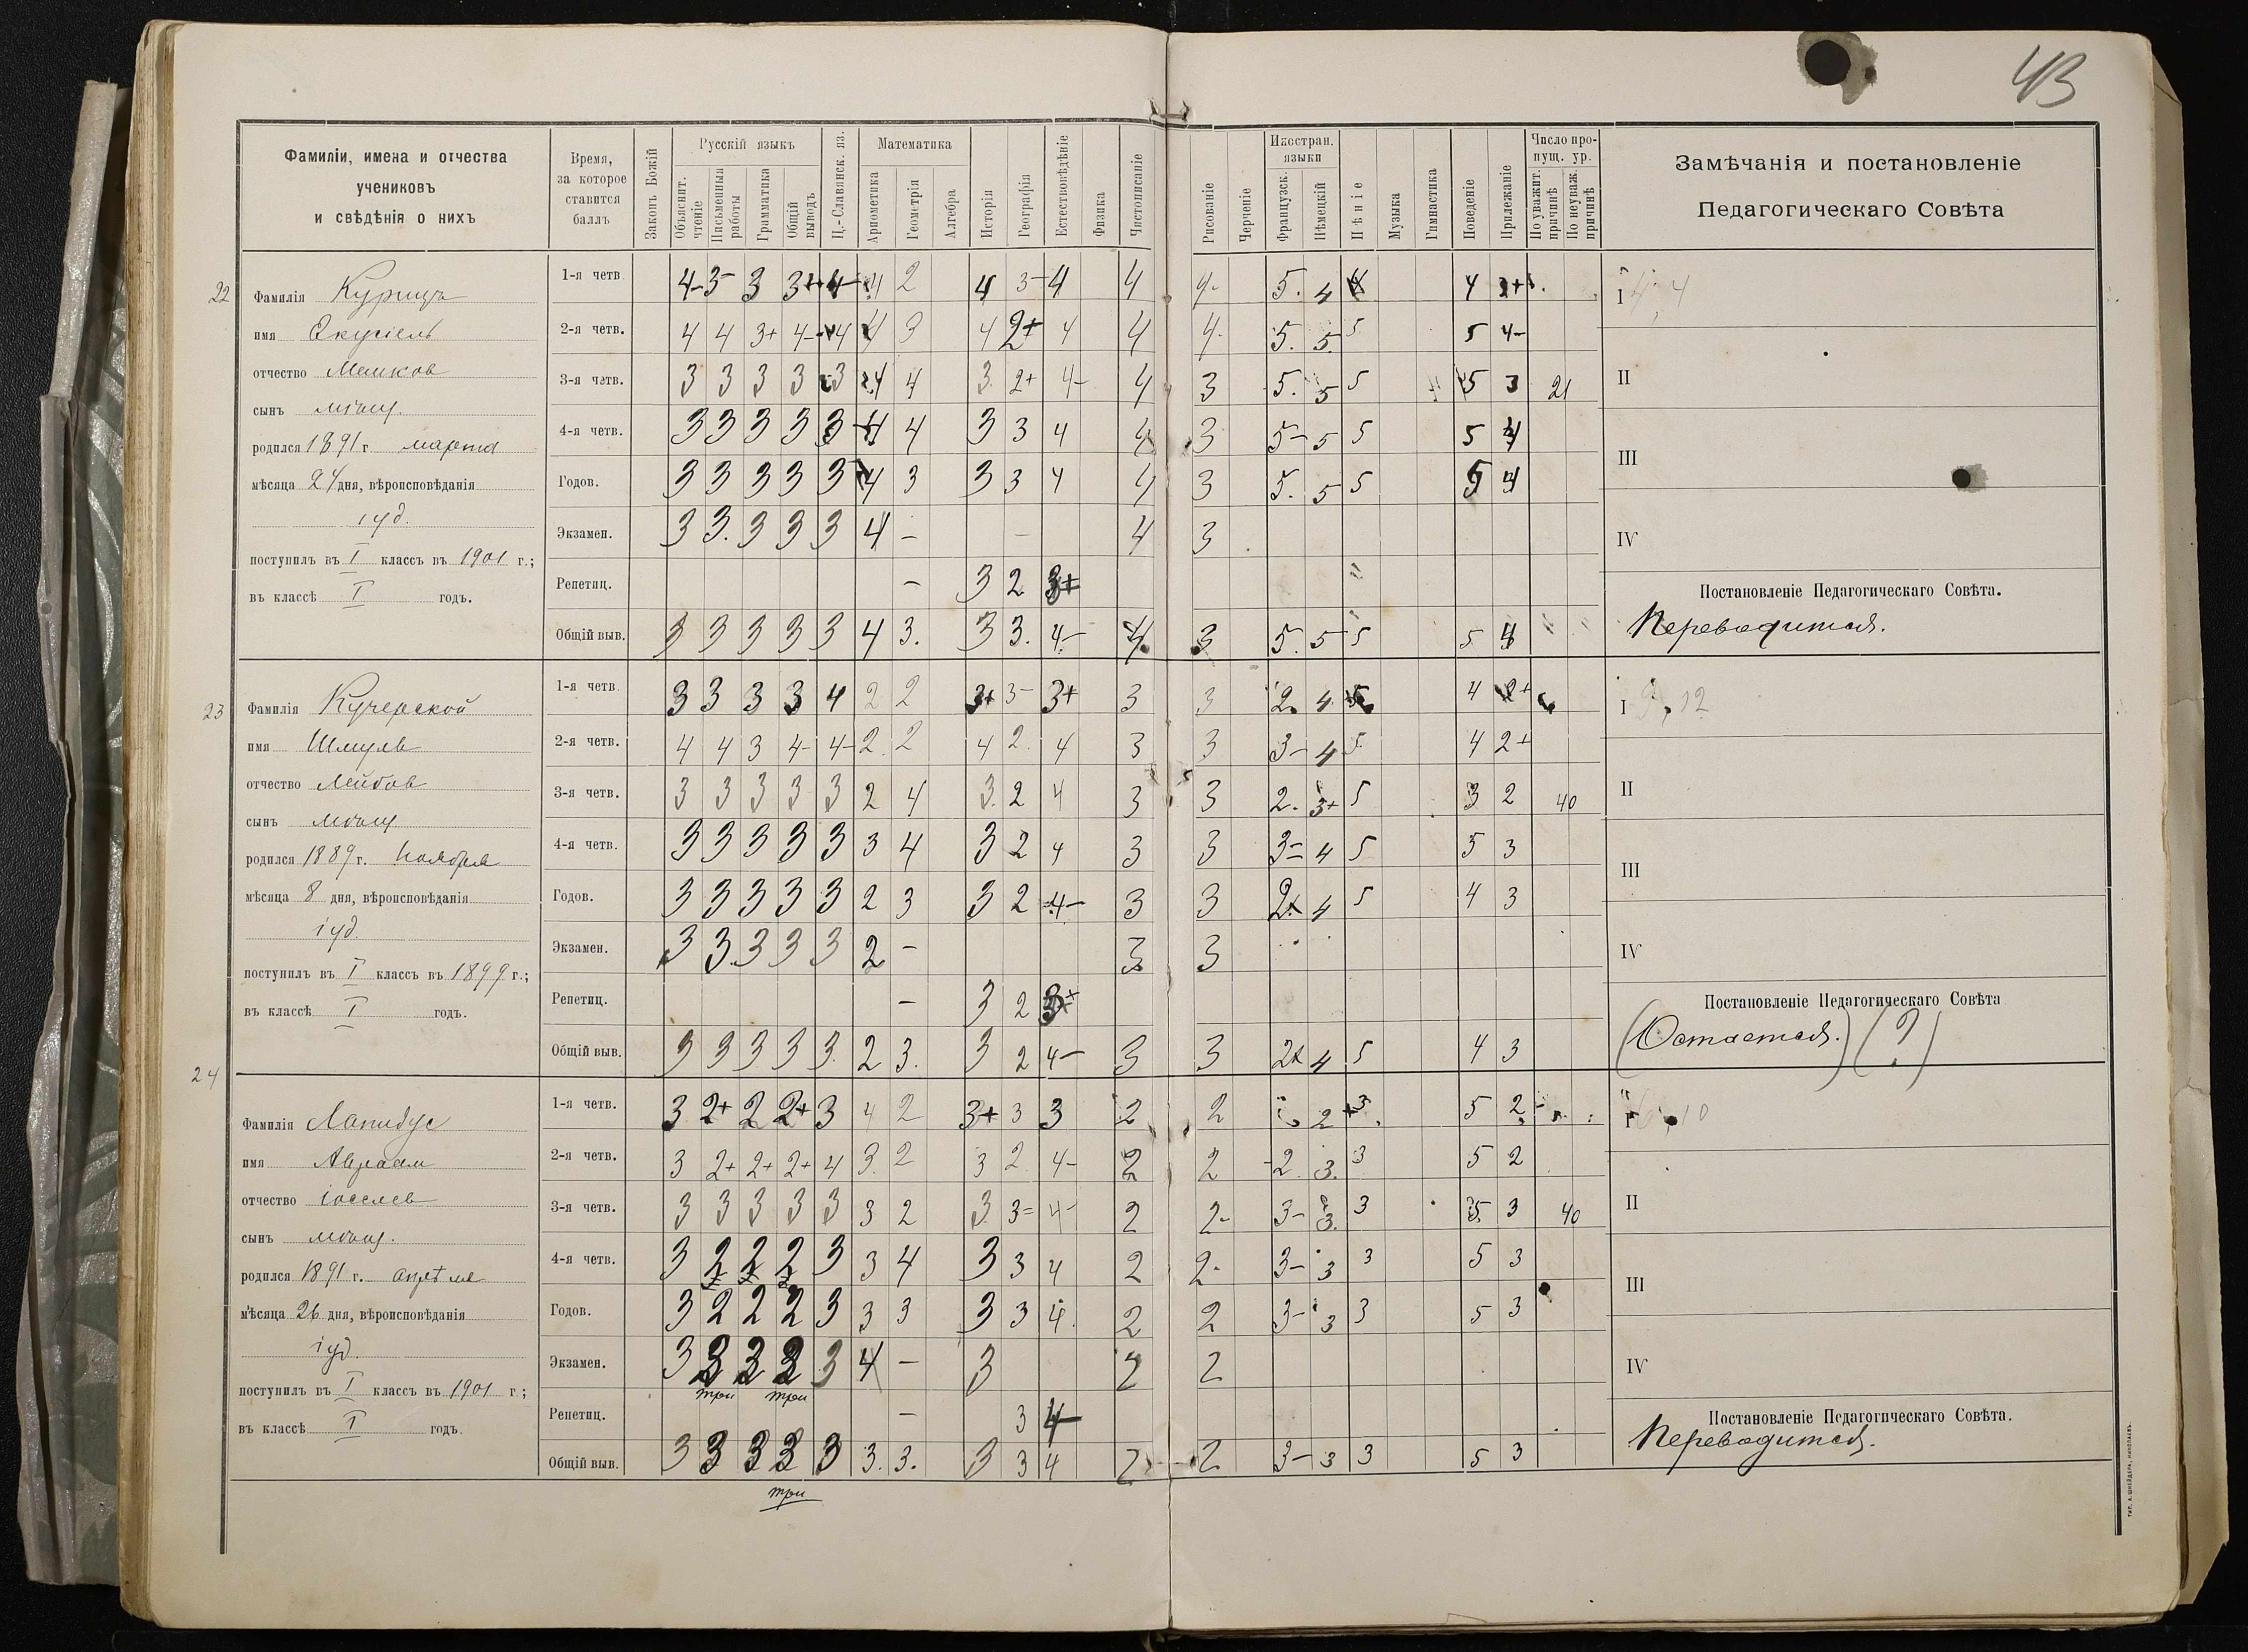 43
Фамиліи, имена и отчества
учениковъ
и свѣдѣнія о нихъ
Время,
за которое
ставится
баллъ
Законъ Божій
Русскій языкъ
Объяснит. чтеніе
Письменныя работы
Грамматика
Общій выводъ
Ц.-Славянск. яз.
Математика
Ариѳметика
Геометрія
Алгебра
Исторія
Географія
Естествовѣдѣніе
Физика
Чистописаніе
Рисованіе
Черченіе
Иностран.
языки
Французск.
Нѣмецкій
Пѣніе
Музыка
Гимнастика
Поведеніе
Прилежаніе
Число про-
пущ. ур.
По уважит. причинѣ
По неуваж. причинѣ
Замѣчанія и постановленіе
Педагогическаго Совѣта
22
Фамилія Курицъ
имя Екусіель
отчество Мешков
сынъ мѣщ.
родился 1891 г. марта
мѣсяца 24 дня, вѣроисповѣданія
іуд.
поступилъ въ I классъ въ 1901 г.;
въ классѣ I годъ.
1-я четв. 4- 3- 3 3+ 4- 4 2 4 3- 4 4 4- 5. 4 4 4 3+
2-я четв. 4 4 3+ 4- 4 4 3 4 2+ 4 4 4- 5. 5. 5 5 4-
3-я четв. 3 3 3 3 3 4 4 3. 2+ 4- 4 3 5. 5 5 5 3 21
4-я четв. 3 3 3 3 3 4 4 3 3 4 4 3 5- 5 5 5 4
Годов. 3 3 3 3 3 4 3 3 3 4 4 3 5. 5 5 5 4
Экзамен. 3 3. 3 3 3 4 - - 4 3
Репетиц. - 3 2 3+
Общій выв. 3 3 3 3 3 4 3. 3 3. 4- 4 3 5. 5 5 5 4
I 4, 4
II
III
IV
Постановленіе Педагогическаго Совѣта.
Переводится.
23
Фамилія Кучерской
имя Шмуль
отчество Лейбов
сынъ мѣщ
родился 1889 г. ноября
мѣсяца 8 дня, вѣроисповѣданія
іуд.
поступилъ въ I классъ въ 1899 г.;
въ классѣ I годъ.
1-я четв. 3 3 3 3 4 2 2 3+ 3- 3+ 3 3 2. 4 5 4 2+
2-я четв. 4 4 3 4- 4- 2. 2 4 2. 4 3 3 3- 4 5. 4 2+
3-я четв. 3 3 3 3 3 2 4 3. 2 4 3 3 2. 3+ 5 3 2 40
4-я четв. 3 3 3 3 3 3 4 3 2 4 3 3 3= 4 5 5 3
Годов. 3 3 3 3 3 2 3 3 2 4- 3 3 2 4 5 4 3
Экзамен. 3 3. 3 3 3 2 - 3 3
Репетиц. - 3 2 3+
Общій выв. 3 3 3 3 3. 2 3. 3 2 4- 3 3 2 4 5 4 3
I , 12
II
III
IV
Постановленіе Педагогическаго Совѣта
(Остается.) (?)
24
Фамилія Лапидус
имя Авраам
отчество Іоселев
сынъ мѣщ.
родился 1891 г. апрѣля
мѣсяца 26 дня, вѣроисповѣданія
іуд.
поступилъ въ I классъ въ 1901 г;
въ классѣ I годъ.
1-я четв. 3 2+ 2 2+ 3 4 2 3+ 3 3 2 2 2 3. 5 2
2-я четв. 3 2+ 2+ 2+ 4 3. 2 3 2. 4- 2 2 2. 3. 3 5 2
3-я четв. 3 3 3 3 3 3 2 3. 3= 4- 2 2- 3- 3. 3 5 3 40
4-я четв. 3 2 2 2 3 3 4 3 3 4 2 2- 3- 3 3 5 3
Годов. 3 2 2 2 3 3 3 3 3 4. 2 2 3- 3 3 5 3
Экзамен. 3 3 3 3 3 4 - 3 2 2
три три
Репетиц. - 3 4-
Общій выв. 3 3 3 3 3 3. 3. 3 3 4 2 2 3- 3 3 5 3
три
I , 10
II
III
IV
Постановленіе Педагогическаго Совѣта.
Переводится.
ТИП. А. ШНЕЙДЕРА, НИКОЛАЕВЪ.